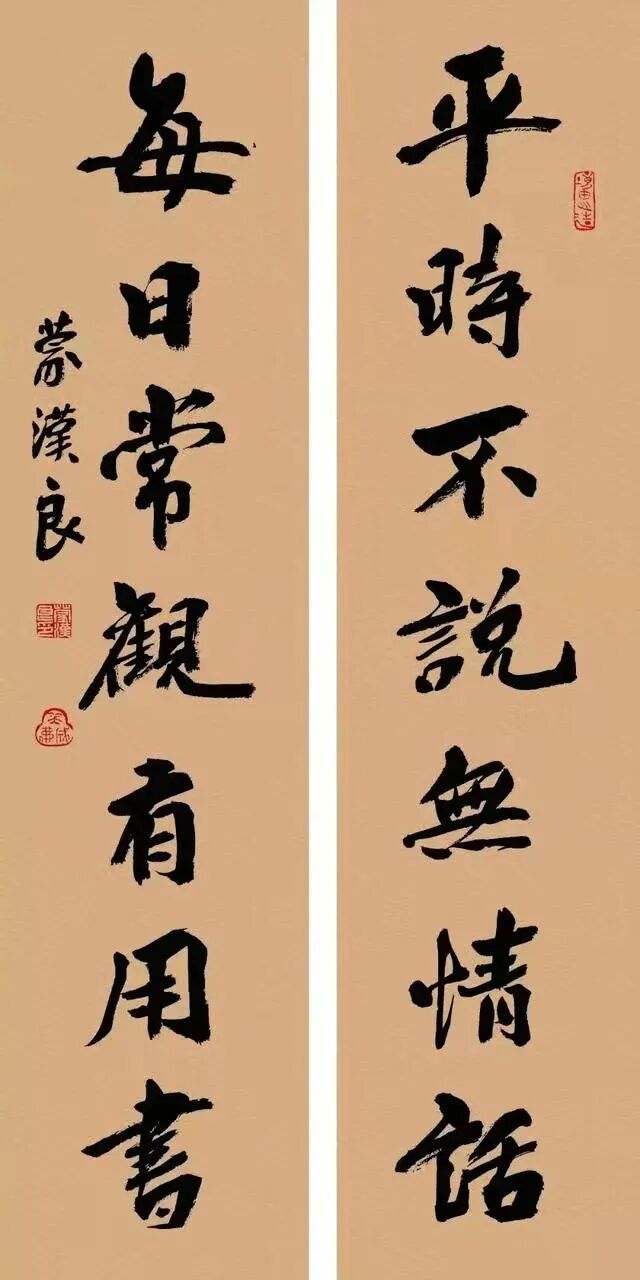 平時不說無情話
每日常觀有用書
蒙漢良